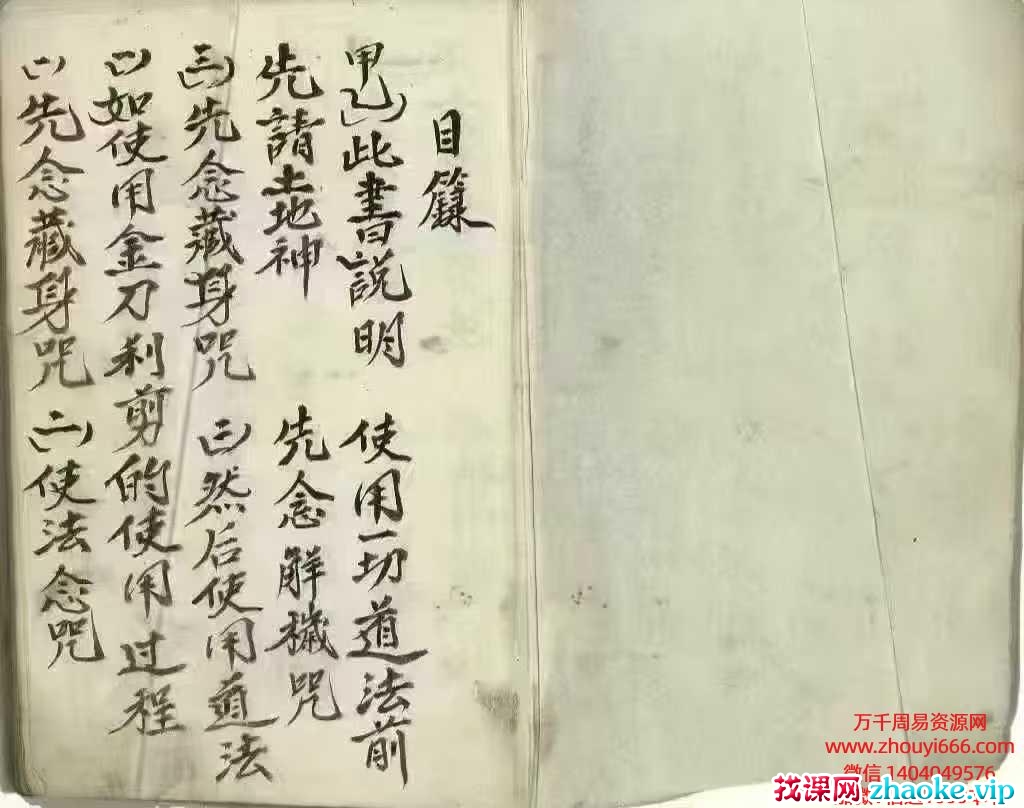 目籙
甲乙)此書説明 使用一切道法前
先請土地神 先念解穢咒
(三)先念藏身咒 (三)然后使用道法
(一)如使用金刀利剪的使用过程
(一)先念藏身咒 (二)使法念咒
万千周易资源网
www.zhouyi666.com
微信 1404049576
找课网zhaoke.vip